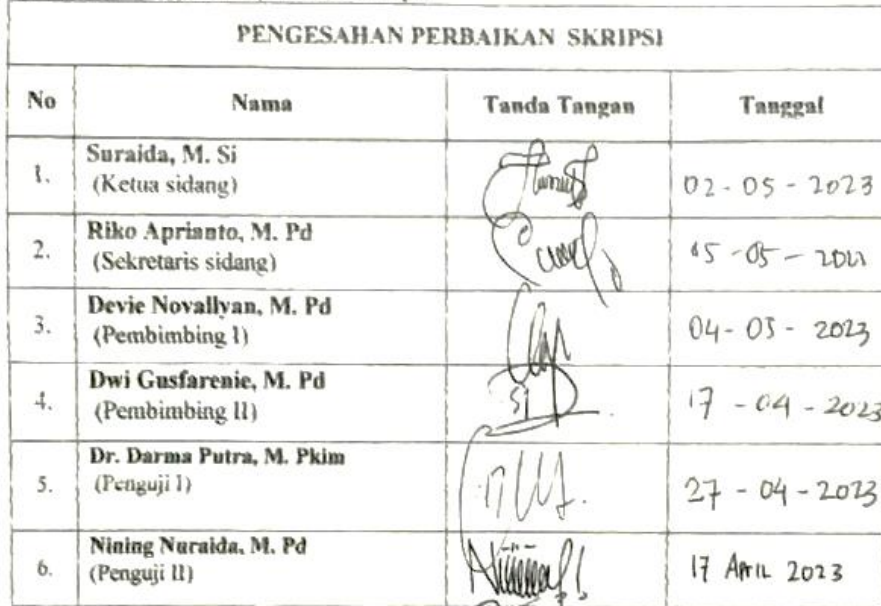 PENGESAHAN PERBAIKAN SKRIPSI
No Nama Tanda Tangan Tanggal
1. Suraida, M. Si
(Ketua sidang)
02 - 05 - 2023
2. Riko Aprianto, M. Pd
(Sekretaris sidang)
05 - 05 -
3. Devie Novallyan, M. Pd
(Pembimbing I)
04 - 05 - 2023
4. Dwi Gusfarenie, M. Pd
(Pembimbing II)
17 - 04 - 2023
5. Dr. Darma Putra, M. Pkim
(Penguji I)
27 - 04 - 2023
6. Nining Nuraida, M. Pd
(Penguji II)
17 APRIL 2023